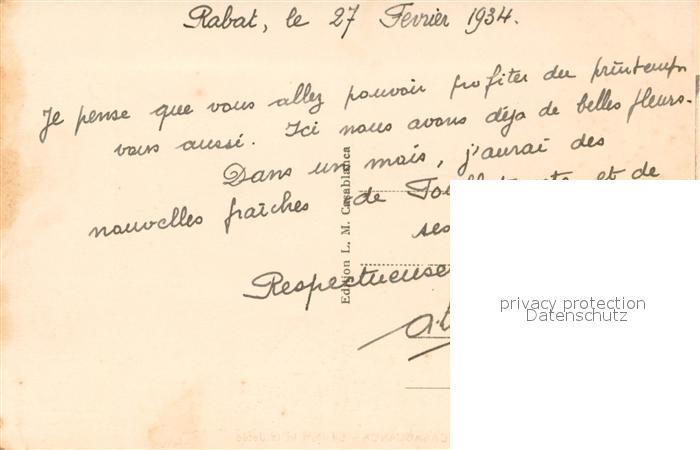 Rabat, le 27 Fevrier 1934.
Je pense que vous allez pouvoir profiter du printemps
vous aussi. Ici nous avons déja de belles fleurs.
Dans un mois, j'aurai des
nouvelles fraîches de et de
ses
Respectueuse
Edition L. M. Casablanca
privacy protection
Datenschutz